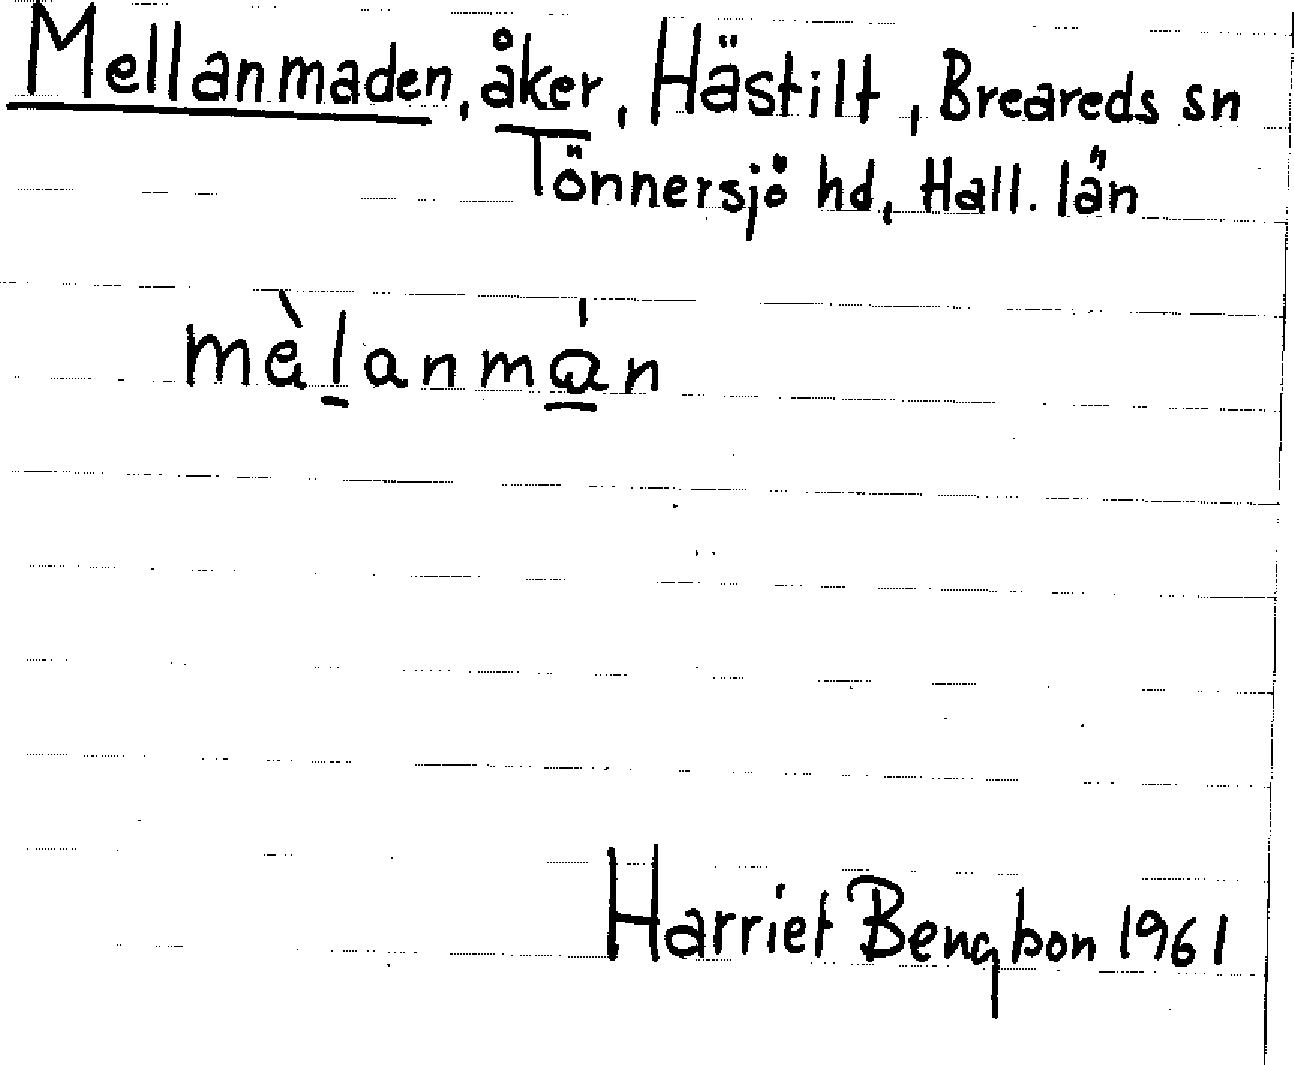 Mellanmaden, åker, Hästilt, Breareds sn
Tönnersjö hd, Hall. län
mèlanmán
Harriet 1961